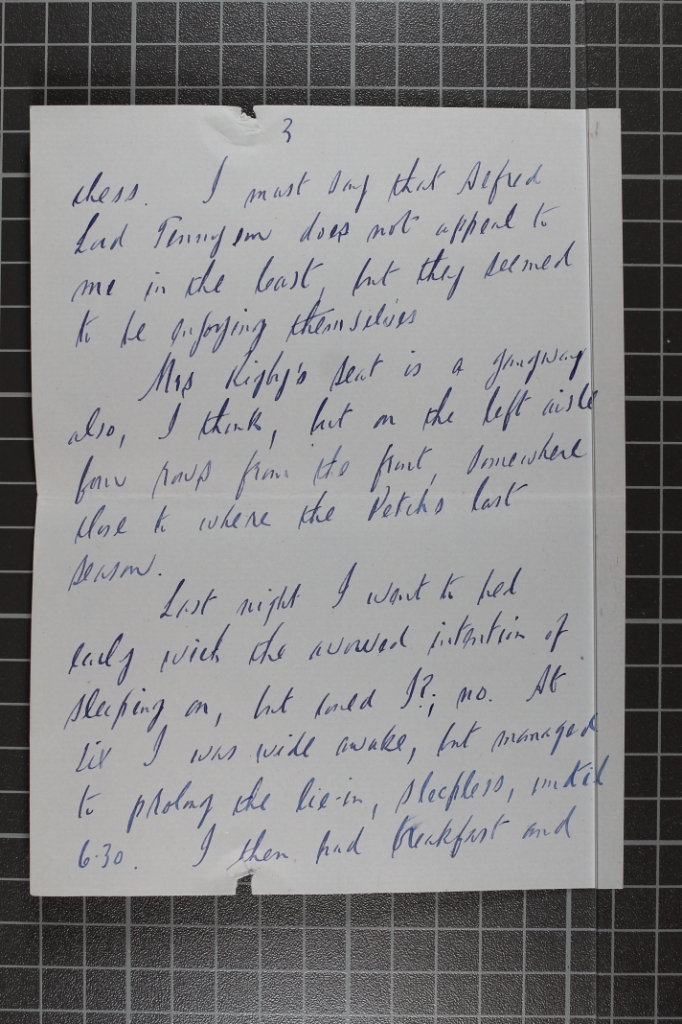 3
chess. I must say that Alfred
Lord Tennyson does not appeal to
me in the least, but they seemed
to be enjoying themselves
Mrs Rigby's seat is a gangway
also, I think, but on the left aisle
four rows from the front, somewhere
close to where the Vetch's last
season.
Last night I went to bed
early with the avowed intention of
sleeping on, but could I?; no. At
six I was wide awake, but managed
to prolong the lie-in, sleepless, until
6.30. I then had breakfast and